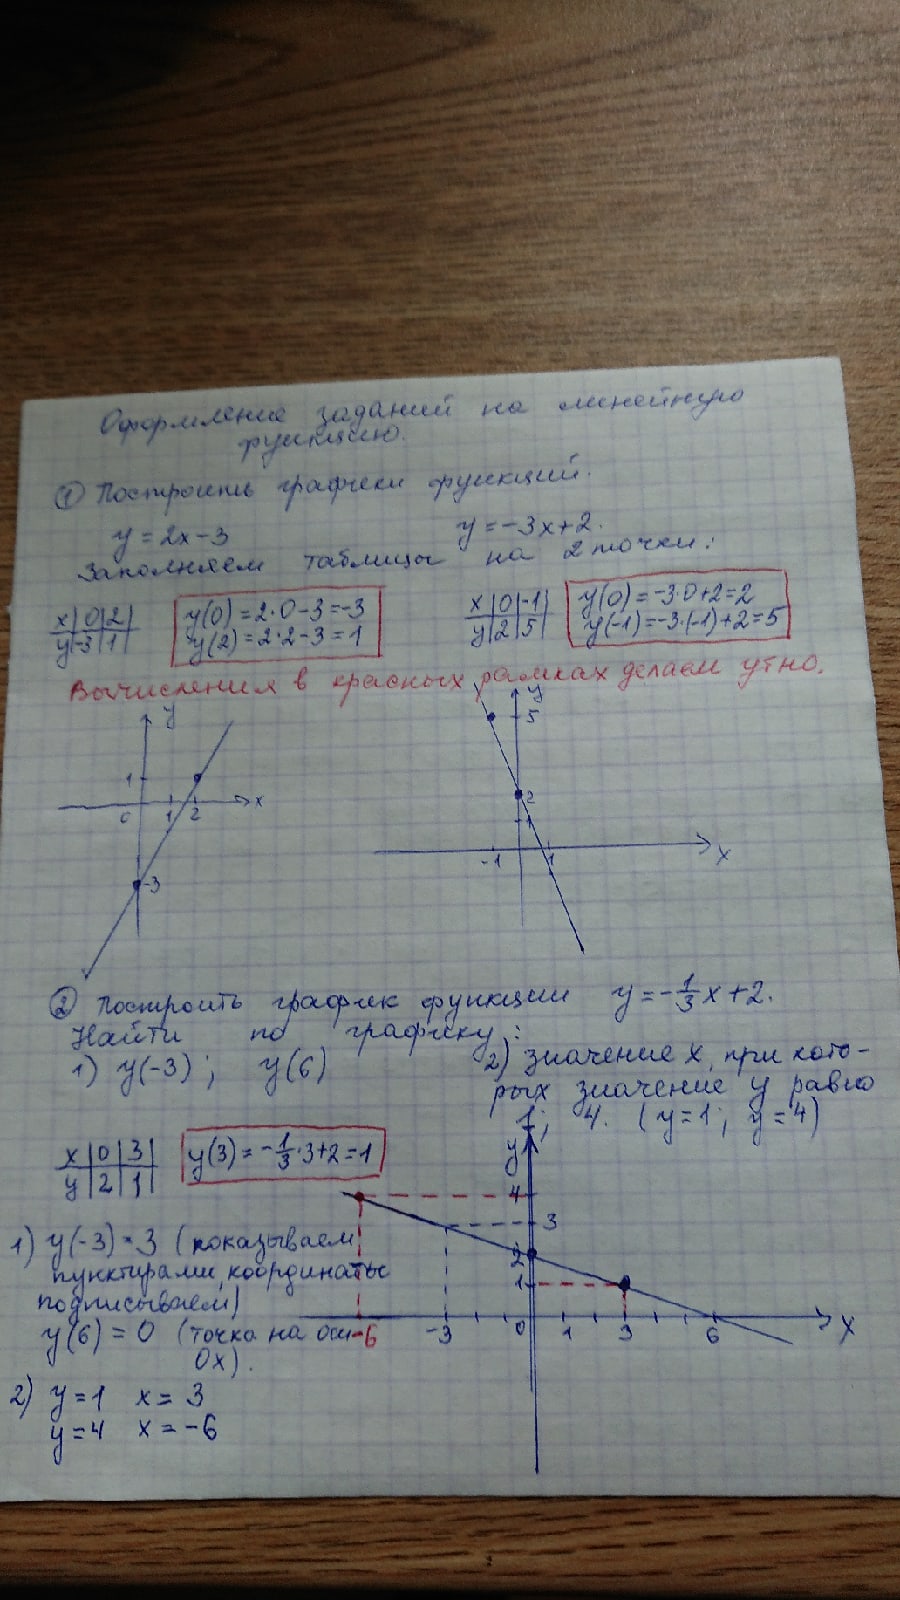 Оформление заданий на линейную
функцию.
① Построить графики функций.
y = 2x - 3
y = -3x + 2.
Заполняем таблицы на 2 точки:
x | 0 | 2 |
y | -3 | 1 |
y(0) = 2·0 - 3 = -3
y(2) = 2·2 - 3 = 1
x | 0 | -1 |
y | 2 | 5 |
y(0) = -3·0 + 2 = 2
y(-1) = -3·(-1) + 2 = 5
Вычисления в красных рамках делаем устно.
y
1
0 1 2 x
-3
y
5
2
1
-1 1 x
② Построить график функции y = -1/3 x + 2.
Найти по графику:
1) y(-3); y(6)
2) значение x, при кото-
рых значение y равно
1; 4. (y = 1; y = 4)
x | 0 | 3 |
y | 2 | 1 |
y(3) = -1/3·3 + 2 = 1
1) y(-3) = 3 (показываем
пунктирами, координаты
подписываем)
y(6) = 0 (точка на оси
Ox).
2) y = 1 x = 3
y = 4 x = -6
y
4
3
2
1
-6 -3 0 1 3 6 x